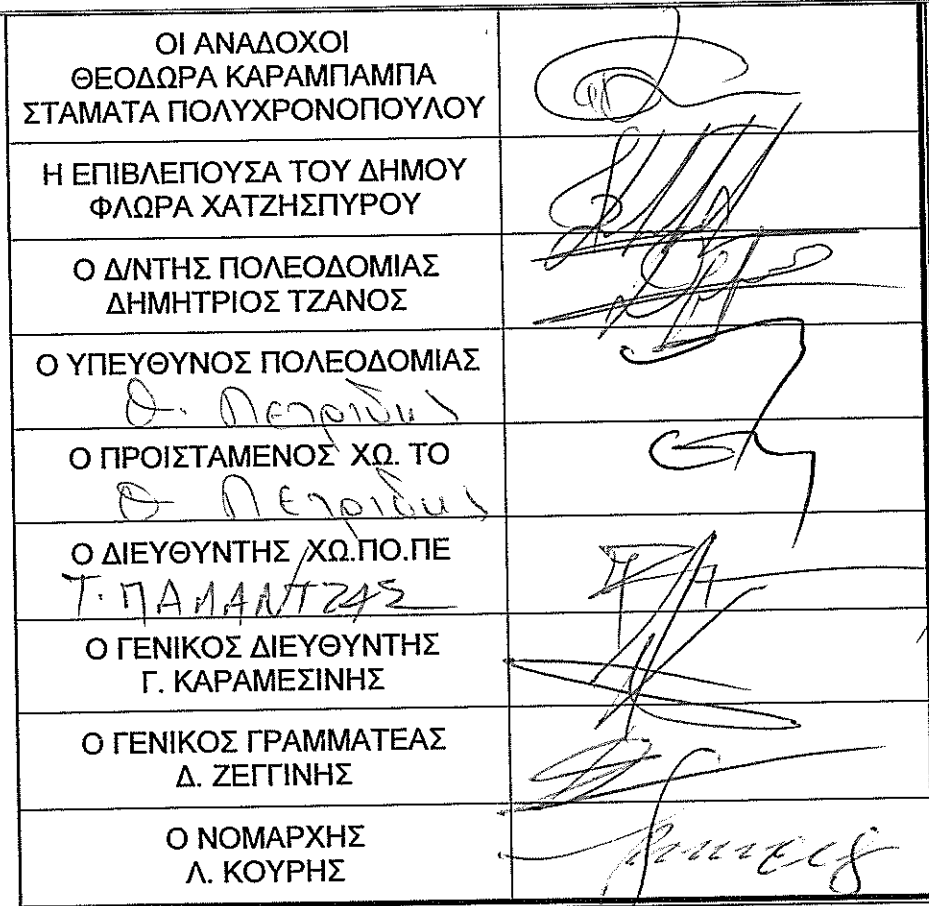 ΟΙ ΑΝΑΔΟΧΟΙ
ΘΕΟΔΩΡΑ ΚΑΡΑΜΠΑΜΠΑ
ΣΤΑΜΑΤΑ ΠΟΛΥΧΡΟΝΟΠΟΥΛΟΥ
Η ΕΠΙΒΛΕΠΟΥΣΑ ΤΟΥ ΔΗΜΟΥ
ΦΛΩΡΑ ΧΑΤΖΗΣΠΥΡΟΥ
Ο Δ/ΝΤΗΣ ΠΟΛΕΟΔΟΜΙΑΣ
ΔΗΜΗΤΡΙΟΣ ΤΖΑΝΟΣ
Ο ΥΠΕΥΘΥΝΟΣ ΠΟΛΕΟΔΟΜΙΑΣ
Θ. Πετρίδης
Ο ΠΡΟΙΣΤΑΜΕΝΟΣ ΧΩ. ΤΟ
Θ Πετρίδης
Ο ΔΙΕΥΘΥΝΤΗΣ ΧΩ.ΠΟ.ΠΕ
Τ. ΠΑΠΑΝΤΖΑΣ
Ο ΓΕΝΙΚΟΣ ΔΙΕΥΘΥΝΤΗΣ
Γ. ΚΑΡΑΜΕΣΙΝΗΣ
Ο ΓΕΝΙΚΟΣ ΓΡΑΜΜΑΤΕΑΣ
Δ. ΖΕΓΓΙΝΗΣ
Ο ΝΟΜΑΡΧΗΣ
Λ. ΚΟΥΡΗΣ